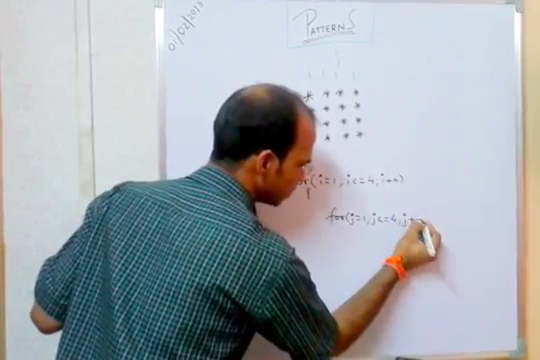 01/02/2013
PATTERNS
j
1 1 1 1
* * * *
* * *
* * *
* * *
for(i=1, i<=4, i++)
for(j=1, j<=4, j+